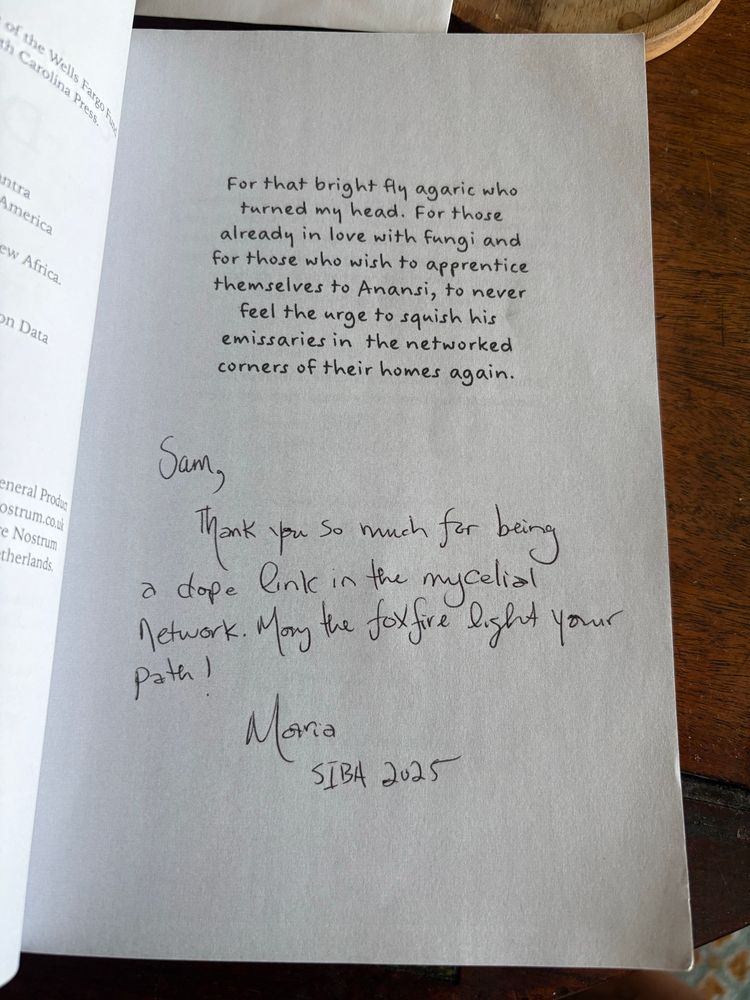 of the Wells Fargo
th Carolina Press.
ntra
America
ew Africa.
on Data
eneral Produ
ostrum.co.uk
e Nostrum
etherlands.
For that bright fly agaric who
turned my head. For those
already in love with fungi and
for those who wish to apprentice
themselves to Anansi, to never
feel the urge to squish his
emissaries in the networked
corners of their homes again.
Sam,
Thank you so much for being
a dope link in the mycelial
network. May the foxfire light your
path!
Maria
SIBA 2025